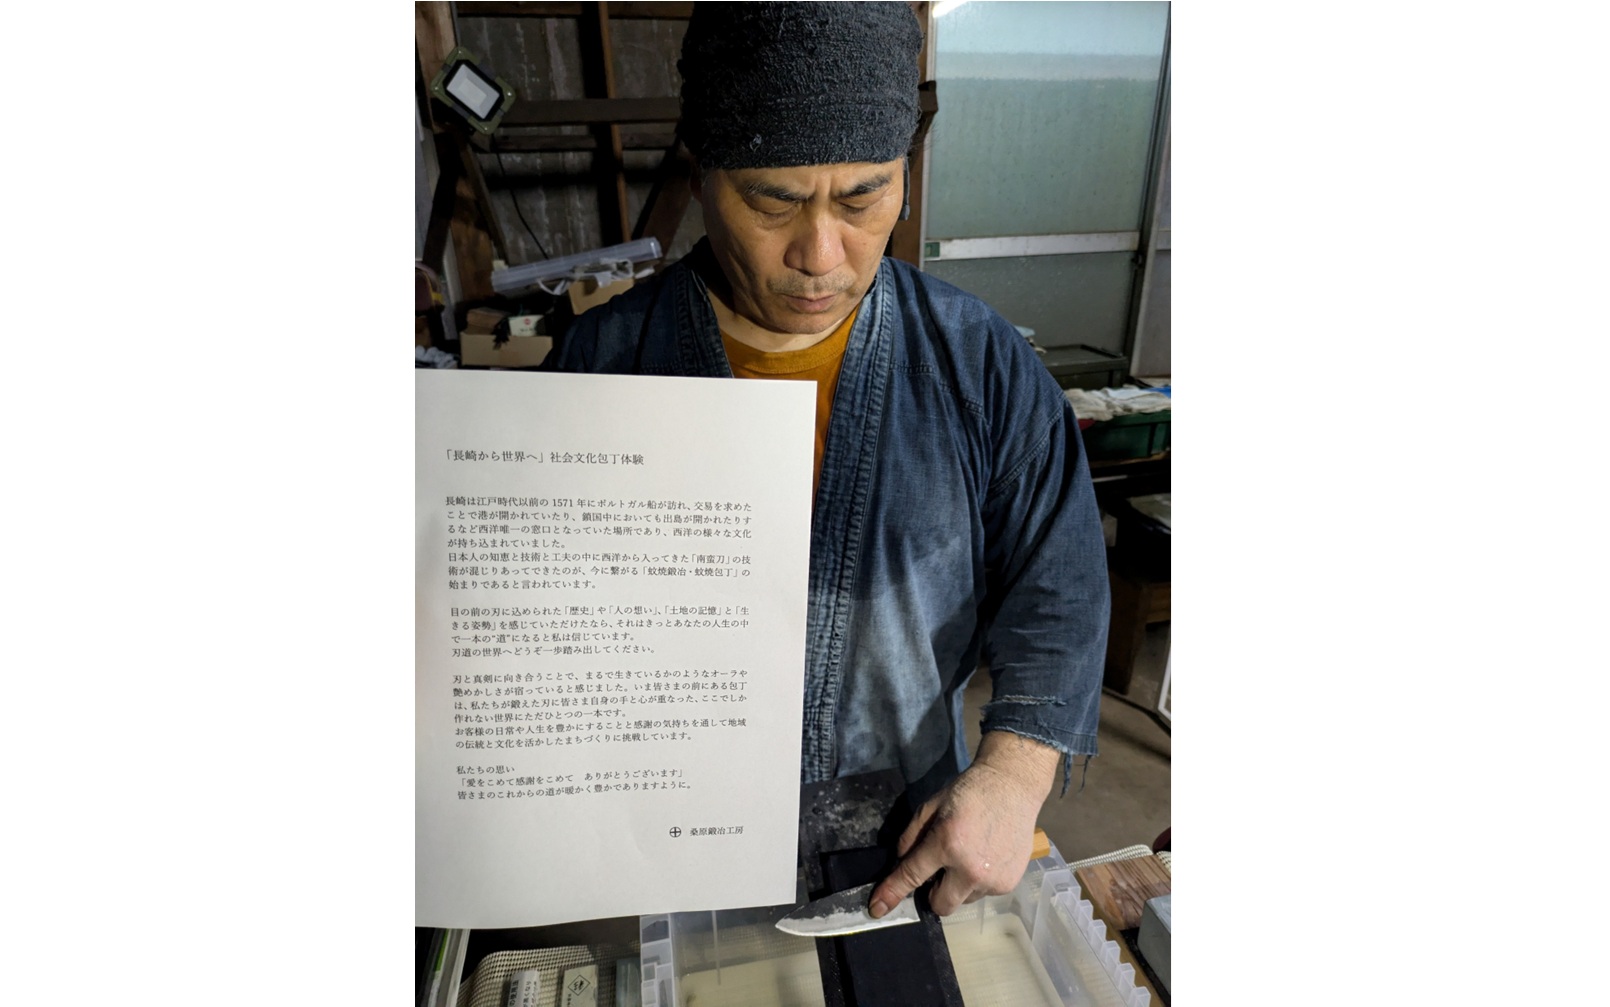 「長崎から世界へ」社会文化包丁体験
長崎は江戸時代以前の 1571 年にポルトガル船が訪れ、交易を求めた
ことで港が開かれていたり、鎖国中においても出島が開かれたりす
るなど西洋唯一の窓口となっていた場所であり、西洋の様々な文化
が持ち込まれていました。
日本人の知恵と技術と工夫の中に西洋から入ってきた「南蛮刀」の技
術が混じりあってできたのが、今に繋がる「蚊焼鍛冶・蚊焼包丁」の
始まりであると言われています。
目の前の刃に込められた「歴史」や「人の想い」、「土地の記憶」と「生
きる姿勢」を感じていただけたなら、それはきっとあなたの人生の中
で一本の“道”になると私は信じています。
刃道の世界へどうぞ一歩踏み出してください。
刃と真剣に向き合うことで、まるで生きているかのようなオーラや
艶めかしさが宿っていると感じました。いま皆さまの前にある包丁
は、私たちが鍛えた刃に皆さま自身の手と心が重なった、ここでしか
作れない世界にただひとつの一本です。
お客様の日常や人生を豊かにすることと感謝の気持ちを通して地域
の伝統と文化を活かしたまちづくりに挑戦しています。
私たちの思い
「愛をこめて感謝をこめて　ありがとうございます」
皆さまのこれからの道が暖かく豊かでありますように。
桑原鍛冶工房